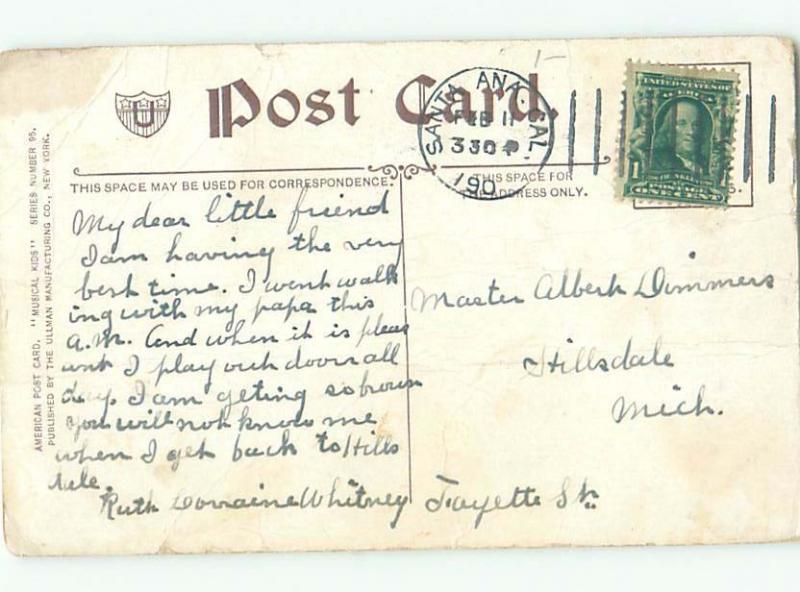 Post Card.
U
SANTA ANA, CAL.
FEB 11
330 P
190
UNITED STATES OF
1
ONE CENT
THIS SPACE MAY BE USED FOR CORRESPONDENCE.
THIS SPACE FOR
THE ADDRESS ONLY.
AMERICAN POST CARD. "MUSICAL KIDS" SERIES NUMBER 95.
PUBLISHED BY THE ULLMAN MANUFACTURING CO., NEW YORK.
My dear little friend
I am having the very
best time. I went walk
ing with my papa this
a.m. And when it is pleas
ant I play out doors all
day. I am geting so brown
you will not know me
when I get back to Hills
dale.
Ruth Lorraine Whitney
Master Albert Dimmers
Hillsdale
Mich.
Fayette St.